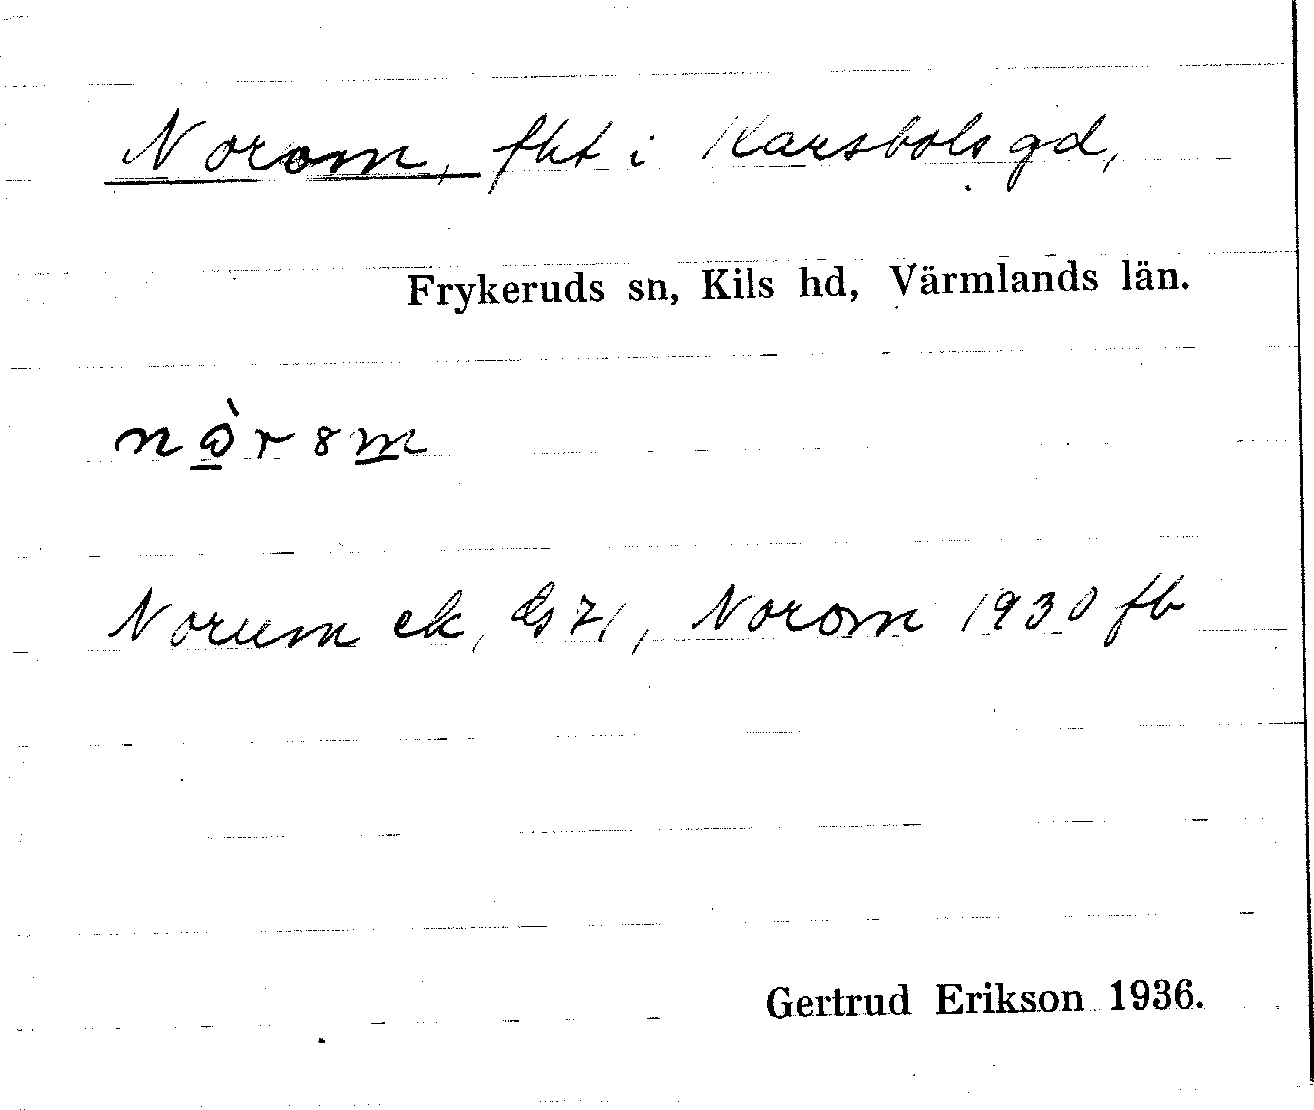 Norom, fht i Karsbols gd,
Frykeruds sn, Kils hd, Värmlands län.
Norum ek, ds 71, Norom 1930 fb
Gertrud Erikson 1936.